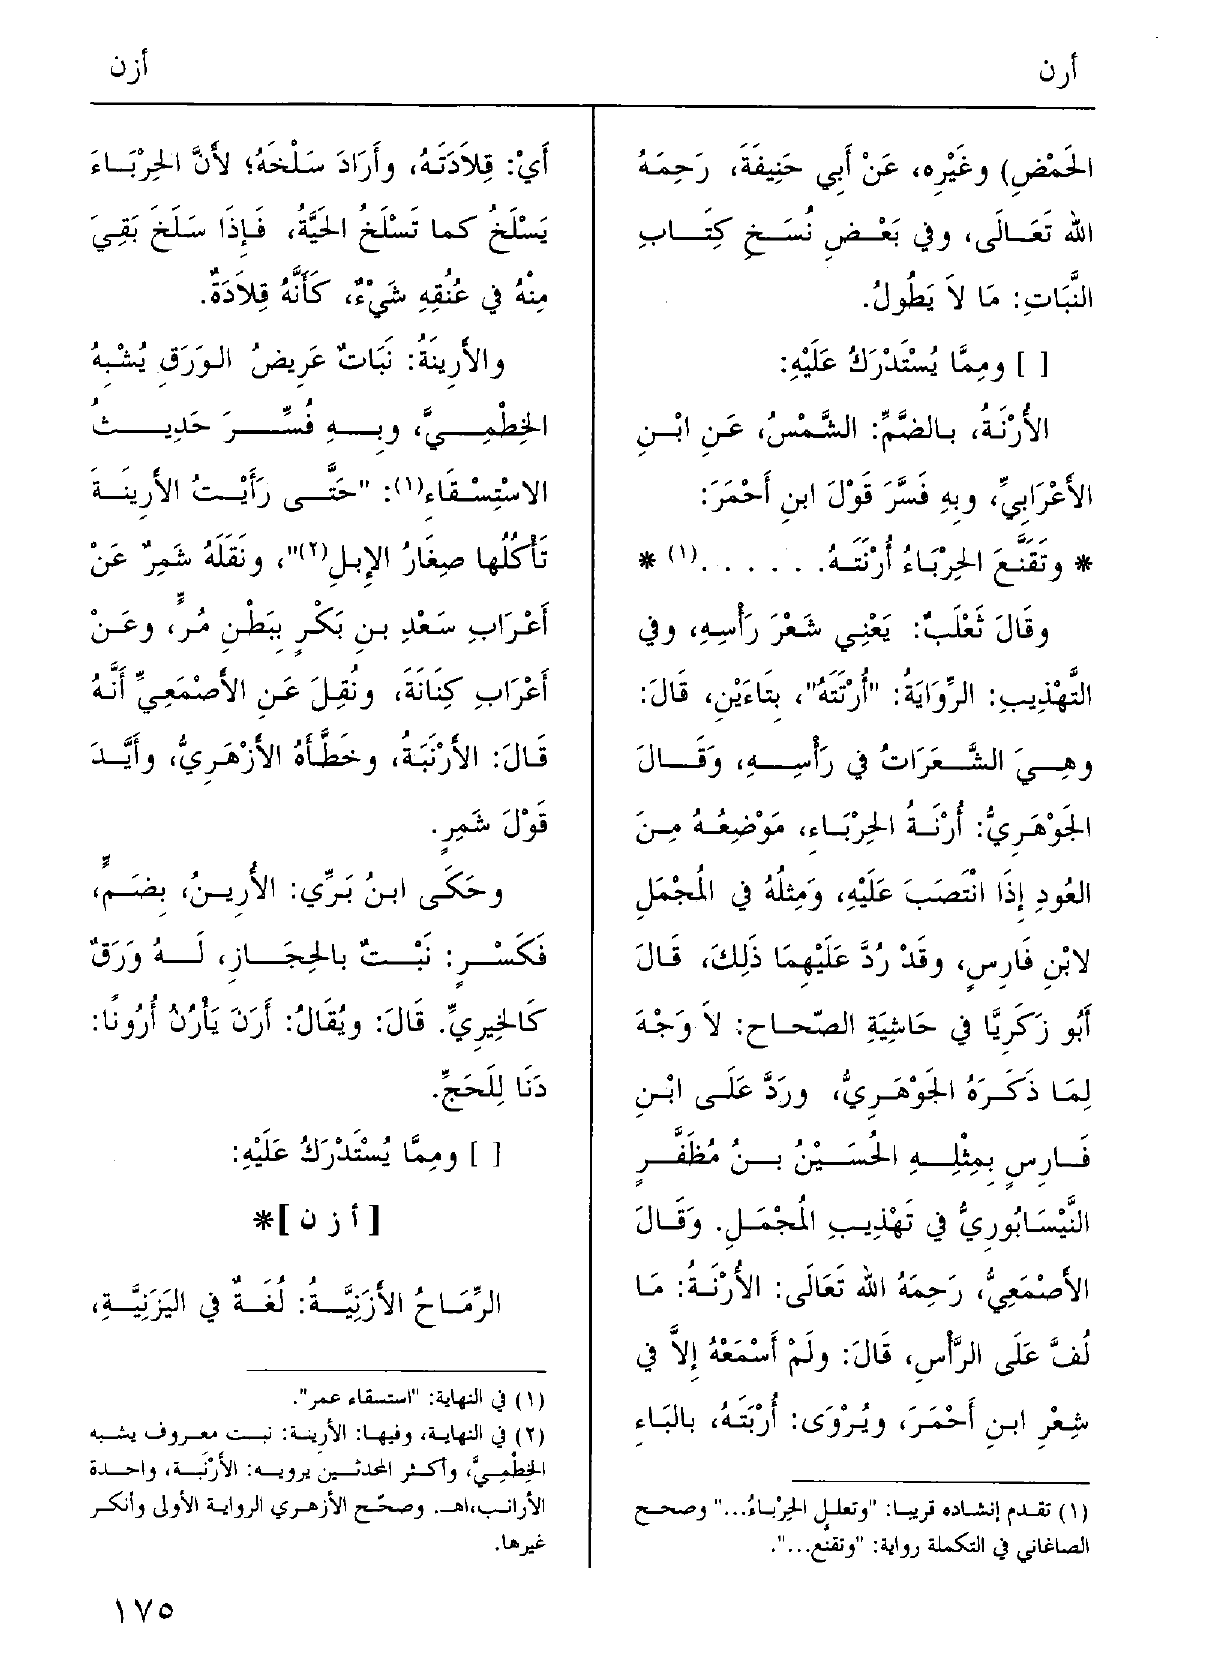 أرن
أزن
الحَمْضِ) وغَيْرِه، عَنْ أبي حَنِيفَةَ، رَحِمَهُ
الله تَعَالَى، وفي بَعْضِ نُسَخِ كِتَابِ
النَّبَاتِ: مَا لاَ يَطُولُ.
[ ] ومِمَّا يُسْتَدْرَكُ عَلَيْهِ:
الأُرْنَةُ، بالضَّمِّ: الشَّمْسُ، عَنِ ابْنِ
الأَعْرَابِيِّ، وبِهِ فَسَّرَ قَوْلَ ابنِ أَحْمَرَ:
* وتَقَنَّعَ الحِرْبَاءُ أُرْنَتَهُ. . . . . . .(١) *
وقَالَ ثَعْلَبٌ: يَعْنِي شَعْرَ رَأْسِهِ، وفي
التَّهْذِيبِ: الرِّوَايَةُ: "أُرْتَتَهُ"، بِتَاءَيْنِ، قَالَ:
وهِيَ الشَّعَرَاتُ في رَأْسِهِ، وقَالَ
الجَوْهَرِيُّ: أُرْنَةُ الحِرْبَاءِ، مَوْضِعُهُ مِنَ
العُودِ إذَا انْتَصَبَ عَلَيْهِ، ومِثْلُهُ في المُجْمَلِ
لابْنِ فَارِسٍ، وقَدْ رُدَّ عَلَيْهِمَا ذَلِكَ، قَالَ
أَبُو زَكَرِيَّا في حَاشِيَةِ الصِّحاحِ: لاَ وَجْهَ
لِمَا ذَكَرَهُ الجَوْهَرِيُّ، ورَدَّ عَلَى ابْنِ
فَارِسٍ بِمِثْلِهِ الحُسَيْنُ بنُ مُظَفَّرٍ
النَّيْسَابُورِيُّ في تَهْذِيبِ المُجْمَلِ. وقَالَ
الأَصْمَعِيُّ، رَحِمَهُ الله تَعَالَى: الأُرْنَةُ: مَا
لُفَّ عَلَى الرَّأْسِ، قَالَ: ولَمْ أَسْمَعْهُ إلاَّ في
شِعْرِ ابنِ أَحْمَرَ، ويُرْوَى: أُرْبَتَهُ، بالبَاءِ
(١) تقدم إنشاده قريبا: "وتعلل الحِرْبَاءُ..." وصحح
الصاغاني في التكملة رواية: "وتقنّع...".
أَيْ: قِلاَدَتَهُ، وأَرَادَ سَلْخَهُ؛ لأَنَّ الحِرْبَاءَ
يَسْلَخُ كما تَسْلَخُ الحَيَّةُ، فإذَا سَلَخَ بَقِيَ
مِنْهُ في عُنُقِهِ شَيْءٌ، كَأَنَّهُ قِلاَدَةٌ.
والأَرِينَةُ: نَبَاتٌ عَرِيضُ الوَرَقِ يُشْبِهُ
الخِطْمِيَّ، وبِهِ فُسِّرَ حَدِيثُ
الاسْتِسْقَاءِ(١): "حَتَّى رَأَيْتُ الأَرِينَةَ
تَأْكُلُها صِغَارُ الإبِلِ(٢)"، ونَقَلَهُ شَمِرٌ عَنْ
أَعْرَابِ سَعْدِ بنِ بَكْرٍ بِبَطْنِ مُرٍّ، وعَنْ
أَعْرَابِ كِنَانَةَ، ونُقِلَ عَنِ الأَصْمَعِيِّ أَنَّهُ
قَالَ: الأَرْنَبَةُ، وخَطَّأَهُ الأَزْهَرِيُّ، وأَيَّدَ
قَوْلَ شَمِرٍ.
وحَكَى ابنُ بَرِّي: الأُرِينُ، بِضَمٍّ،
فَكَسْرٍ: نَبْتٌ بالحِجَازِ، لَهُ وَرَقٌ
كَالخِيرِيِّ. قَالَ: ويُقَالُ: أَرَنَ يَأْرُنُ أُرُونًا:
دَنَا لِلْحَجِّ.
[ ] ومِمَّا يُسْتَدْرَكُ عَلَيْهِ:
[ أ ز ن ]*
الرِّمَاحُ الأَزَنِيَّةُ: لُغَةٌ في اليَزَنِيَّةِ،
(١) في النهاية: "استسقاء عمر".
(٢) في النهاية، وفيها: الأرينة: نبت معروف يشبه
الخِطْمِيَّ، وأكثر المحدثين يرويه: الأَرْنَبة، واحدة
الأرانب،اهـ. وصحّح الأزهري الرواية الأولى وأنكر
غيرها.
١٧٥